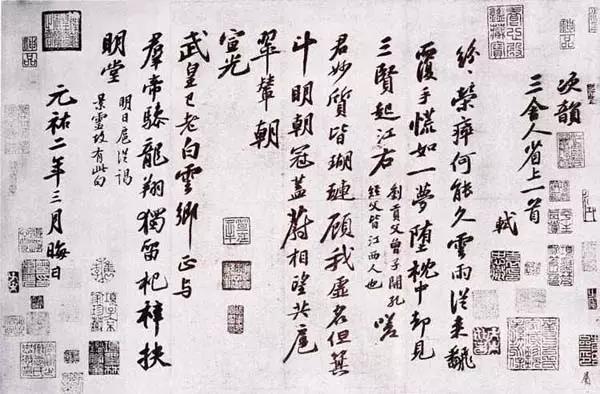 次韻
三舍人省上一首
軾
紛〻榮瘁何能久雲雨從来飜
覆手慌如一夢墮枕中却見
三賢起江右
劉貢父曾子開孔
經父皆江西人也
嗟
君妙質皆瑚璉顧我虛名但箕
斗明朝冠蓋蔚相望共扈
翠輦朝
宣光
武皇已老白雲鄉正与
羣帝驂龍翔獨留杞梓扶
明堂
明日扈從謁
景靈故有此句
元祐二年三月晦日